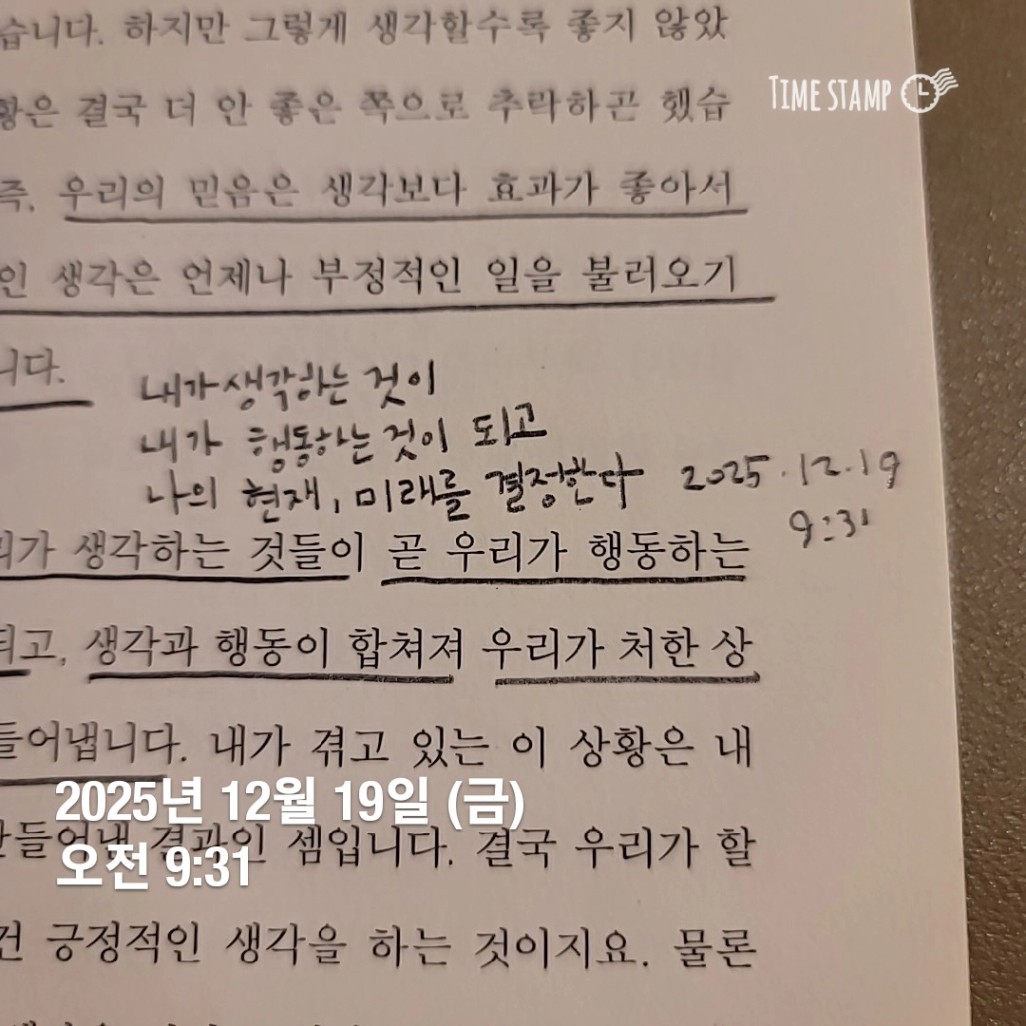 습니다. 하지만 그렇게 생각할수록 좋지 않았
TIME STAMP
황은 결국 더 안 좋은 쪽으로 추락하곤 했습
즉, 우리의 믿음은 생각보다 효과가 좋아서
인 생각은 언제나 부정적인 일을 불러오기
니다.
내가 생각하는 것이
내가 행동하는 것이 되고
나의 현재, 미래를 결정한다 2025.12.19
9:31
리가 생각하는 것들이 곧 우리가 행동하는
되고, 생각과 행동이 합쳐져 우리가 처한 상
들어냅니다. 내가 겪고 있는 이 상황은 내
2025년 12월 19일 (금)
만들어낸 결과인 셈입니다. 결국 우리가 할
오전 9:31
건 긍정적인 생각을 하는 것이지요. 물론